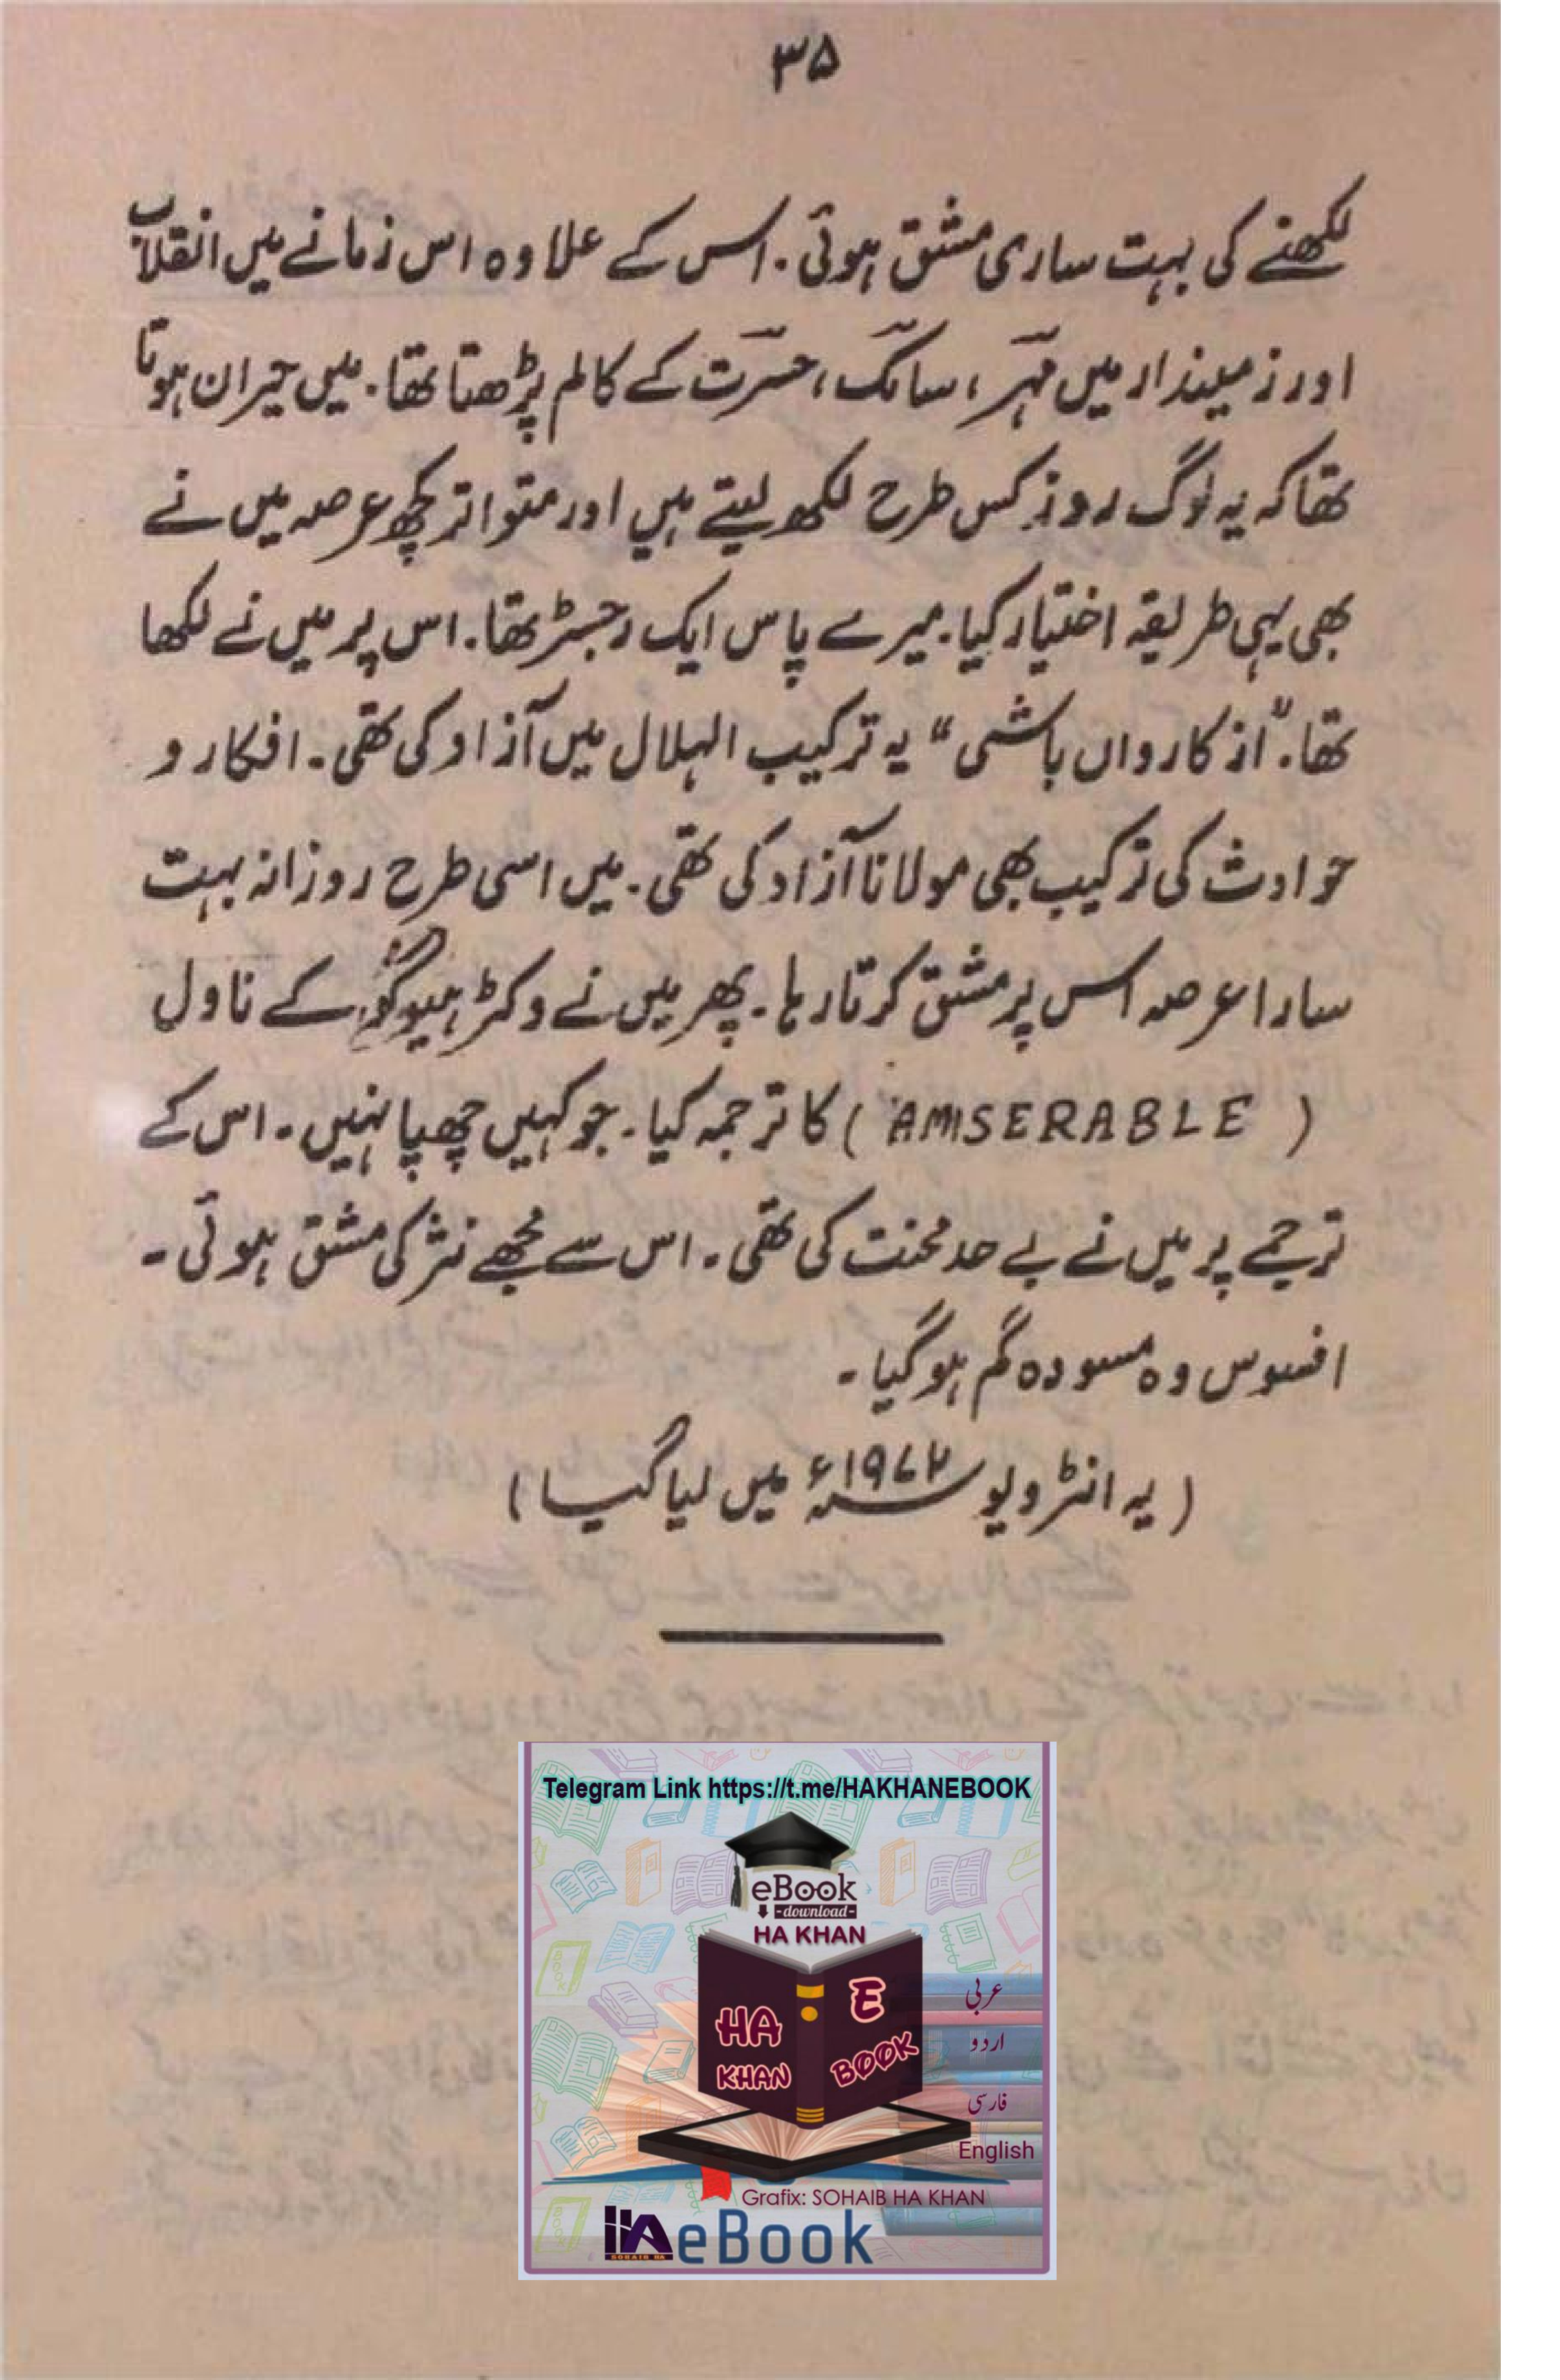 ۳۵
لکھنے کی بہت ساری مشق ہوئی۔ اس کے علاوہ اس زمانے میں انقلاب
اور زمیندار میں مہر، سالک، حسرت کے کالم پڑھتا تھا۔ میں حیران ہوتا
تھا کہ یہ لوگ روز کس طرح لکھ لیتے ہیں اور متواتر کچھ عرصہ میں نے
بھی یہی طریقہ اختیار کیا۔ میرے پاس ایک رجسٹر تھا۔ اس پر میں نے لکھا
تھا۔ "از کارواں باشمی" یہ ترکیب الہلال میں آزاد کی تھی۔ افکار و
حوادث کی ترکیب بھی مولانا آزاد کی تھی۔ میں اسی طرح روزانہ بہت
سارا عرصہ اس پر مشق کرتا رہا۔ پھر میں نے وکٹر ہیوگو کے ناول
(AMISERABLE) کا ترجمہ کیا۔ جو کہیں چھپا نہیں۔ اس کے
ترجمے پر میں نے بے حد محنت کی تھی۔ اس سے مجھے نثر کی مشق ہوئی۔
افسوس وہ مسودہ گم ہو گیا۔
(یہ انٹرویو ۱۹۷۲ء میں لیا گیا)
Telegram Link https://t.me/HAKHANEBOOK
eBook
-download-
HA KHAN
HA
KHAN
E
BOOK
عربی
اردو
فارسی
English
Grafix: SOHAIB HA KHAN
HA eBook
SOHAIB HA